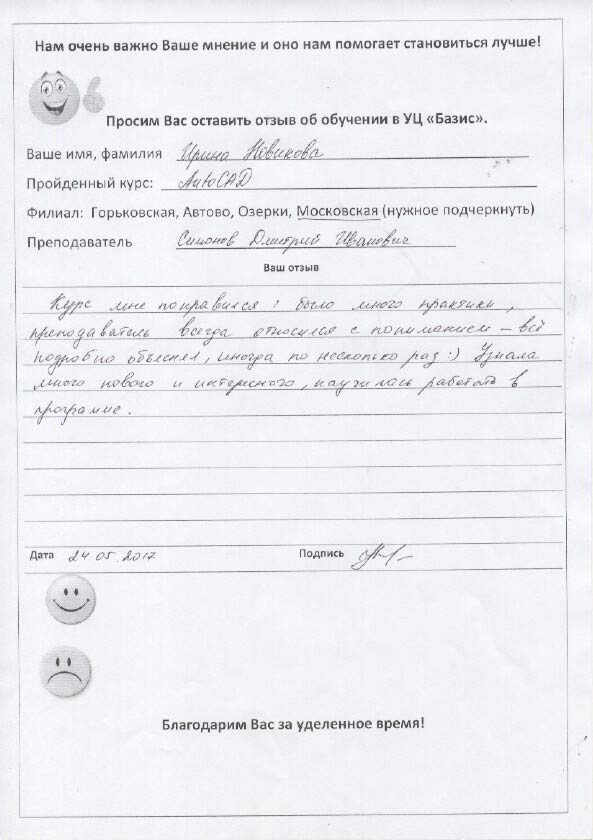 Нам очень важно Ваше мнение и оно нам помогает становиться лучше!
Просим Вас оставить отзыв об обучении в УЦ «Базис».
Ваше имя, фамилия Ирина Новикова
Пройденный курс: AutoCAD
Филиал: Горьковская, Автово, Озерки, Московская (нужное подчеркнуть)
Преподаватель Симонов Дмитрий Иванович
Ваш отзыв
Курс мне понравился: было много практики,
преподаватель всегда относился с пониманием – всё
подробно объяснял, иногда по несколько раз :) Узнала
много нового и интересного, научилась работать в
программе.
Дата 24 05. 2017 Подпись
Благодарим Вас за уделенное время!